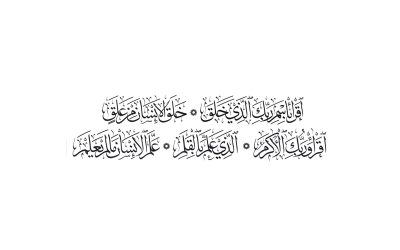 اقْرَأْ بِاسْمِ رَبِّكَ الَّذِي خَلَقَ • خَلَقَ الْإِنْسَانَ مِنْ عَلَقٍ
اقْرَأْ وَرَبُّكَ الْأَكْرَمُ • الَّذِي عَلَّمَ بِالْقَلَمِ • عَلَّمَ الْإِنْسَانَ مَا لَمْ يَعْلَمْ